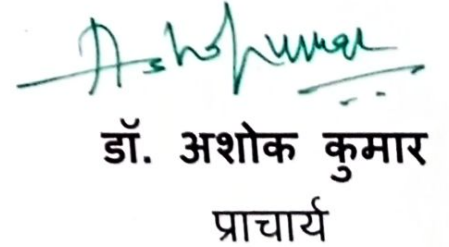 Ashokumar
डॉ. अशोक कुमार
प्राचार्य